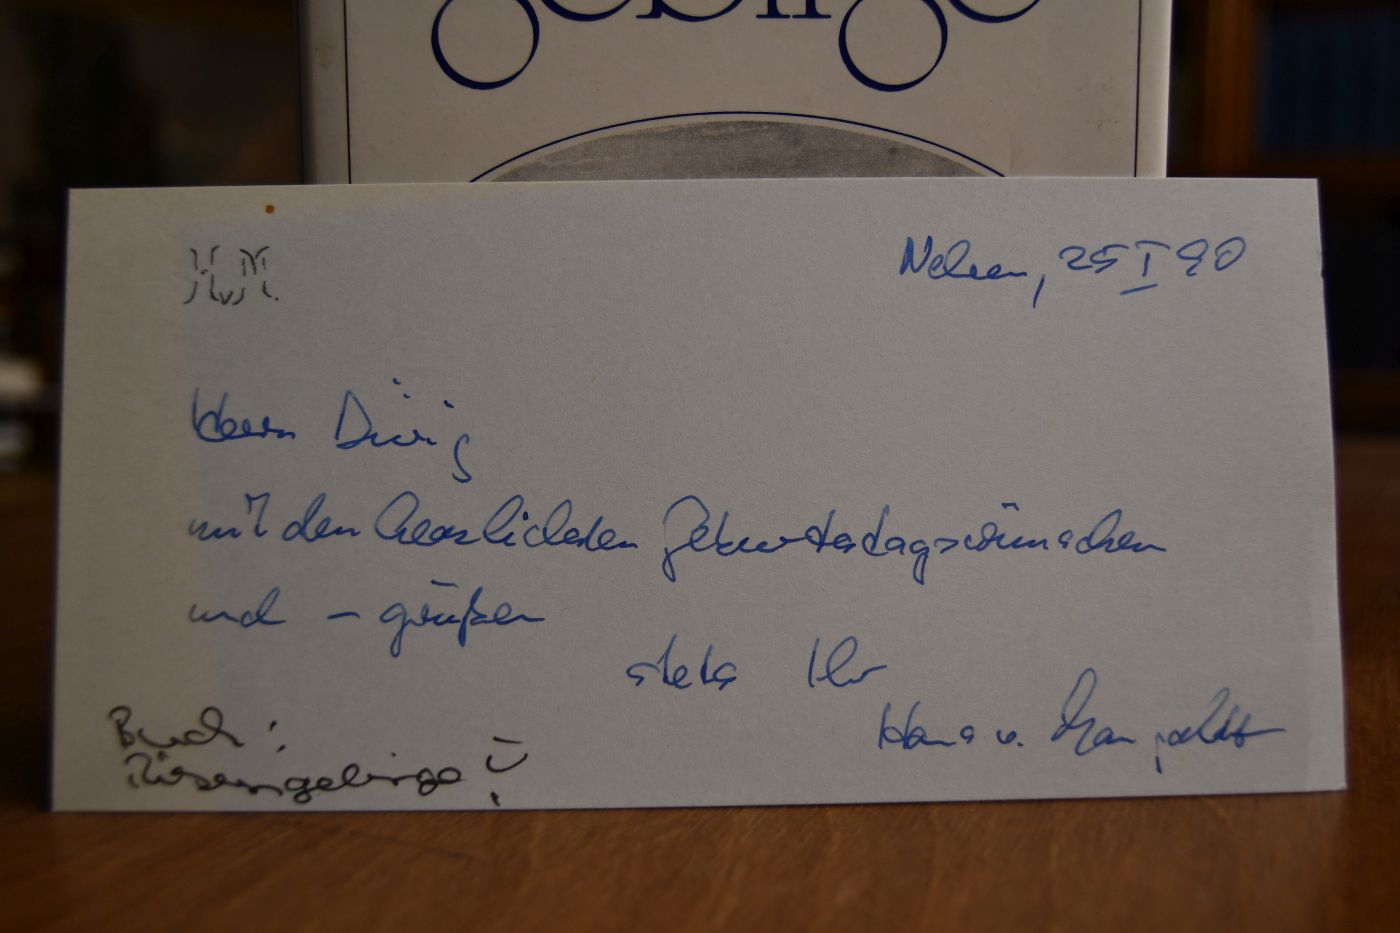 gebirge
HvM.
Nehren, 25 I 90
Herrn Dürig
mit den herzlichsten Geburtstagswünschen
und – grüßen
stets Ihr
Hans v. Mangoldt
Buch:
Riesengebirge